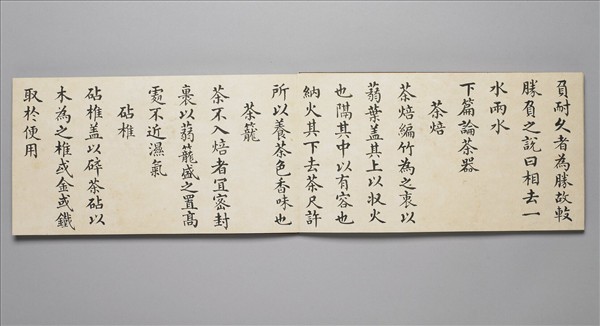 負耐久者為勝故較
勝負之說曰相去一
水兩水
下篇論茶器
茶焙
茶焙編竹為之裹以
蒻葉盖其上以収火
也隔其中以有容也
納火其下去茶尺許
所以養茶色香味也
茶籠
茶不入焙者宜密封
裹以蒻籠盛之置高
處不近濕氣
砧椎
砧椎盖以碎茶砧以
木為之椎或金或鐵
取於便用